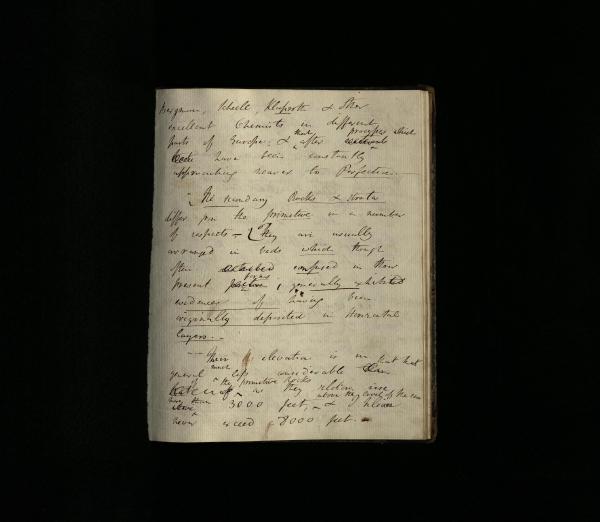 Bergman, Scheele, Klaproth & other
excellent Chemists in different
parts of Europe; & that after processes which
have been constantly
approaching nearer to Perfection. —
The secondary Rocks & strata
differ from the primitive in a number
of respects — They are usually
arranged in beds which though
often disturbed confused in their
present forms, generally exhibited
evidences of having been
originally deposited in horizontal
layers. —
Their elevation is in
general much less considerable than that
of the primitive rocks as they seldom rise
more than 3000 feet, above the level of the sea &
never exceed 8000 feet. —